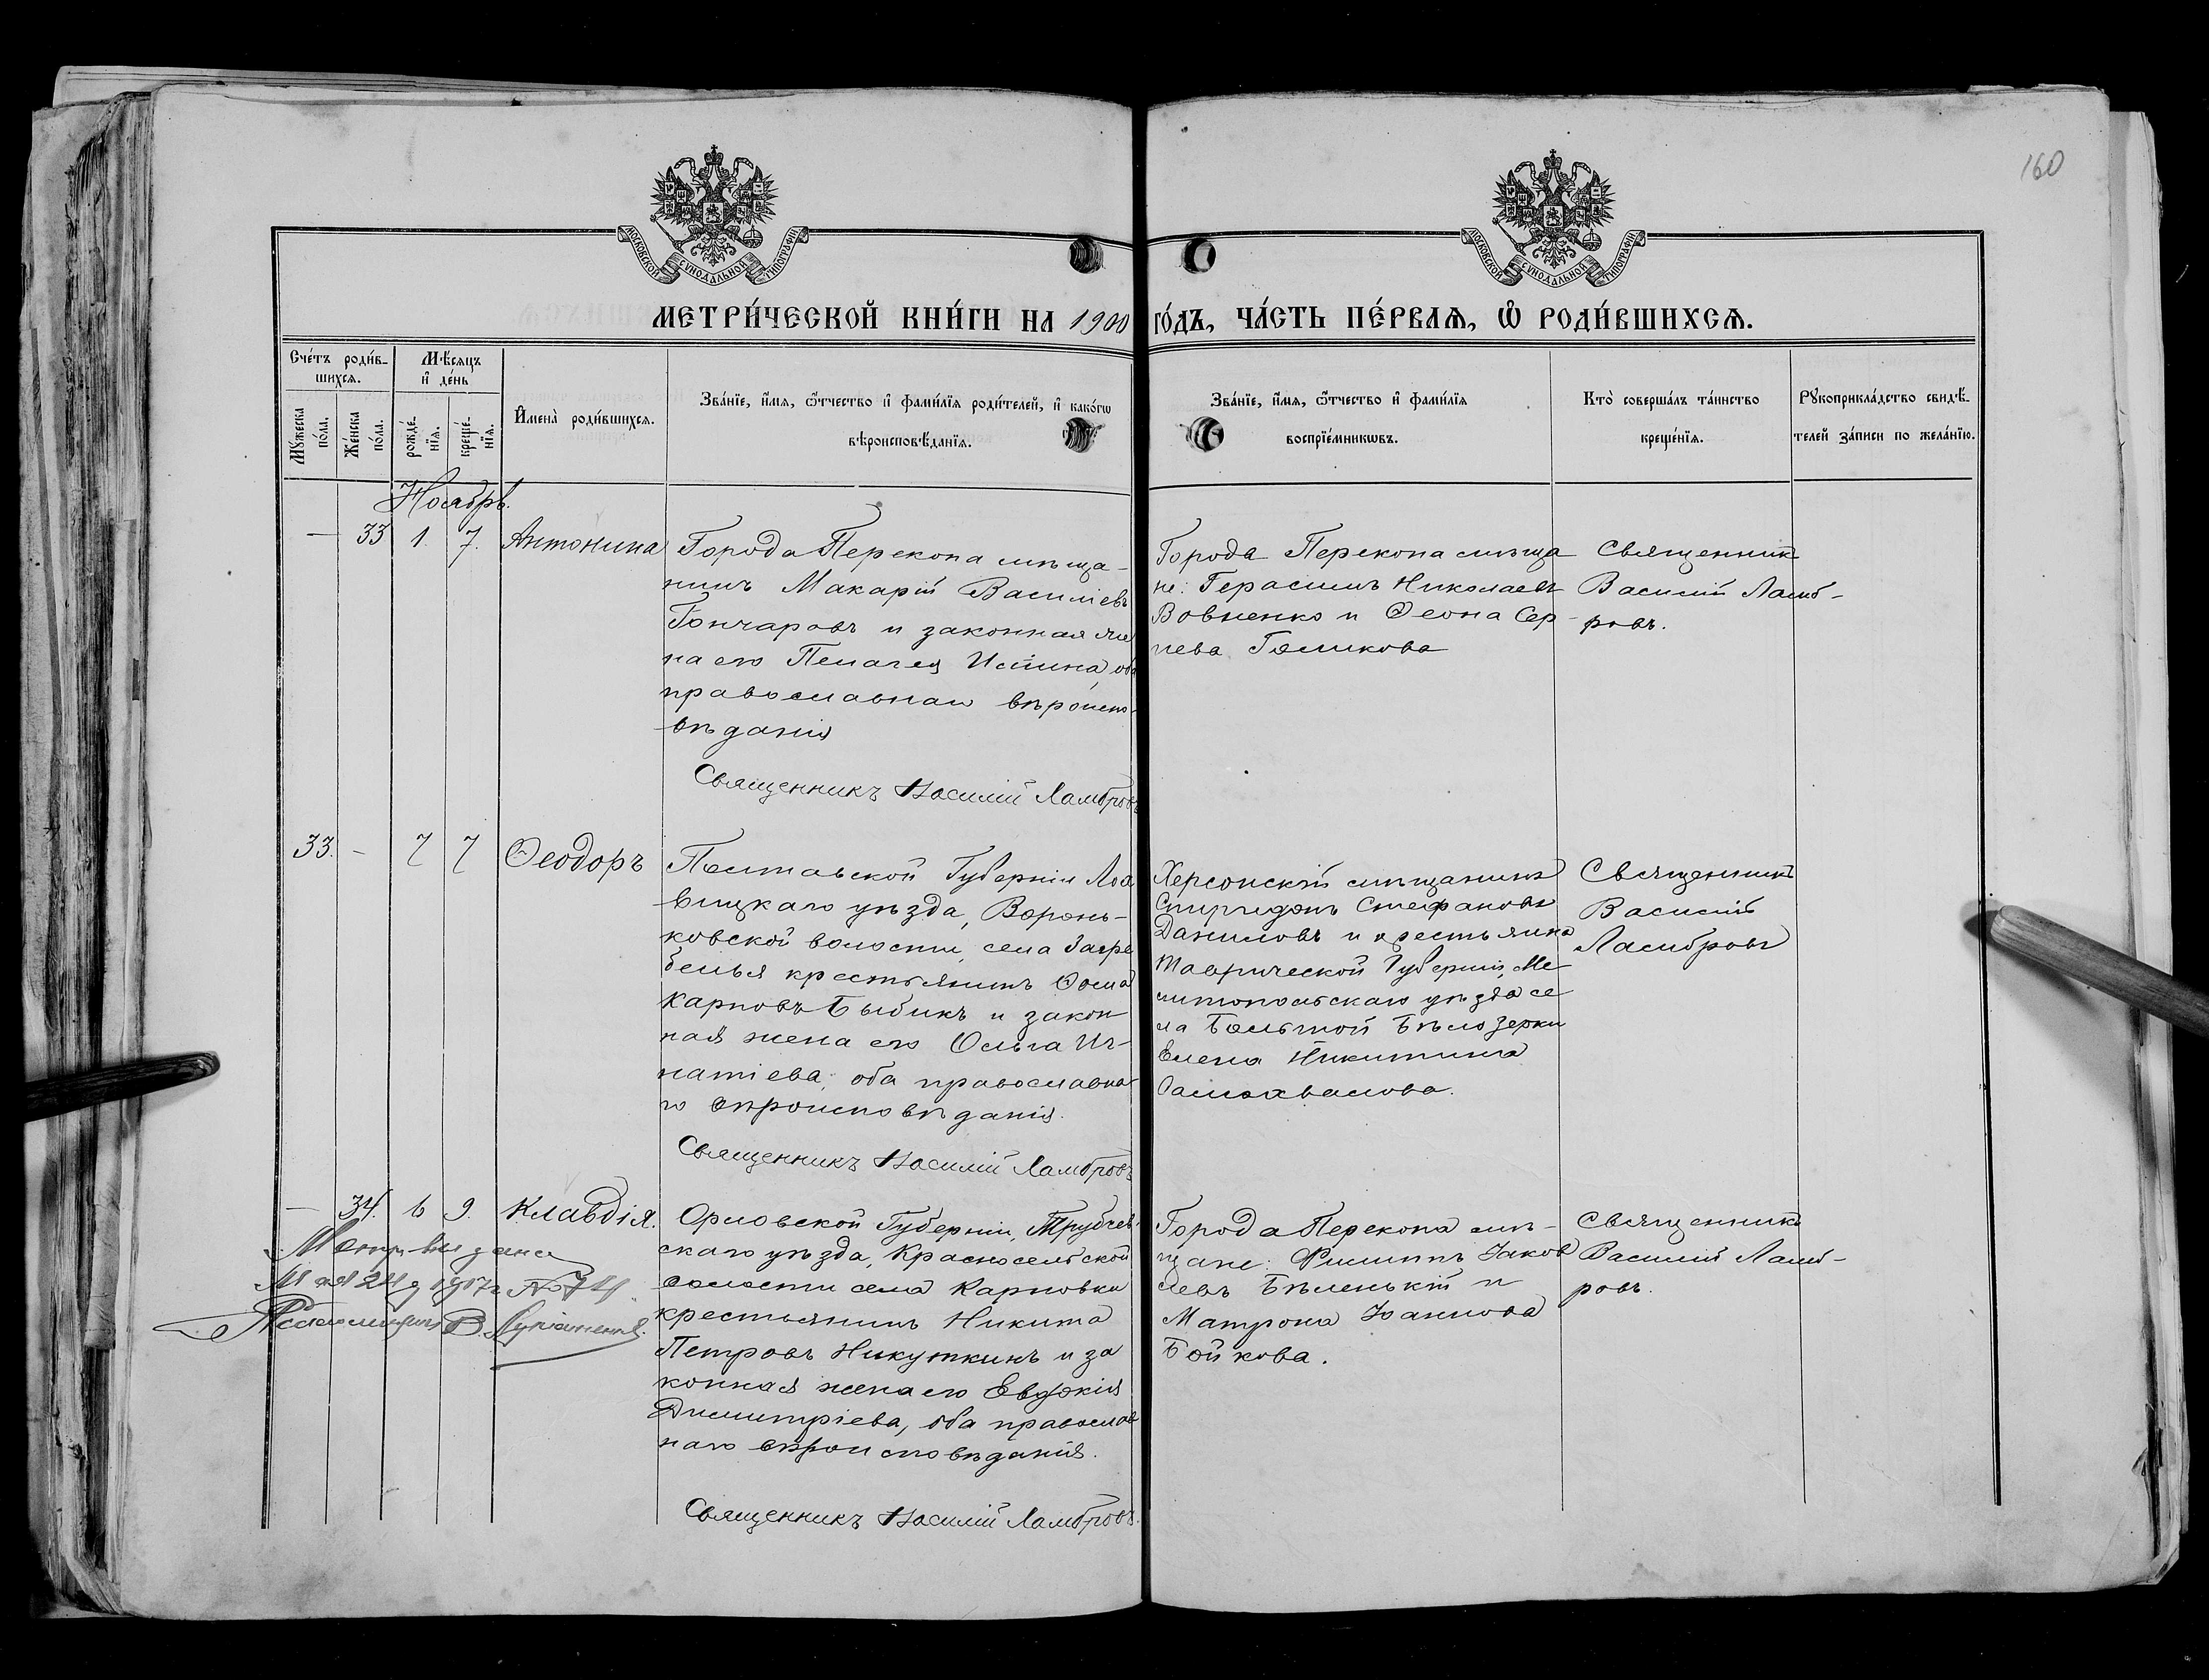 160
МОСКОВСКОЙ СѴНОДАЛЬНОЙ ТИПОГРАФІИ
МОСКОВСКОЙ СѴНОДАЛЬНОЙ ТИПОГРАФІИ
МЕТРИ́ЧЕСКОЙ КНИ́ГИ НА 1900 ГО́ДЪ, ЧА́СТЬ ПЕ́РВАѦ, Ѽ РОДИ́ВШИХСѦ.
Сче́тъ роди́в-
шихсѧ.
Мѣ́сѧцъ
и҆ де́нь
Мꙋ́жеска
по́ла.
Же́нска
по́ла.
рожде́-
нїѧ.
креще́-
нїѧ.
И҆мена̀ роди́вшихсѧ.
Зва́нїе, и҆́мѧ, ѻ҆́тчество и҆ фами́лїѧ роди́телей, и҆ како́гѡ
вѣроисповѣ́данїѧ.
Зва́нїе, и҆́мѧ, ѻ҆́тчество и҆ фами́лїѧ
воспрїе́мникѡвъ.
Кто̀ соверша́лъ та́инство
креще́нїѧ.
Рꙋкоприкла́дство свидѣ́-
телей за́писи по жела́нїю.
Ноябрь.
— 33 1. 7. Антонина
Города Перекопа мѣща-
нинъ Макарій Василіевъ
Гончаровъ и законная же
на его Пелагея Исаина, оба
православнаго вѣроиспо-
вѣданія
Священникъ Василій Ламбровъ
Города Перекопа мѣща
не: Герасимъ Николаевъ
Вовненко и Ѳеона Сер-
гіева Голикова
Священникъ
Василій Ламб-
ровъ.
33. - 7 7 Ѳеодоръ
Полтавской Губерніи Лох
вицкаго уѣзда, Воронь-
ковской волости, села Загре
белья крестьянинъ Ѳома
Карповъ Быбикъ и закон
ная жена его Ольга Иг-
натіева, оба православна-
го вѣроисповѣданія.
Священникъ Василій Ламбровъ
Херсонскій мѣщанинъ
Спиридонъ Стефановъ
Даниловъ и крестьянка
Таврической Губерніи, Ме
литопольскаго уѣзда се
ла Большой Бѣлозерки
Елена Никитина
Самохвалова.
Священникъ
Василій
Ламбровъ
— 34. 6 9. Клавдія.
Метр. выдана
Мая 24 д 1917 г № 744
В.
Орловской Губерніи, Трубчев-
скаго уѣзда, Красносельской
волости села Карповки
крестьянинъ Никита
Петровъ Никуткинъ и за
конная жена его Евдокія
Димитріева, оба православ
наго вѣроисповѣданія.
Священникъ Василій Ламбровъ.
Города Перекопа мѣ-
щане: Филиппъ Іаков
левъ Бѣленькій и
Матрона Іоаннова
Бойкова.
Священникъ
Василій Ламб-
ровъ.